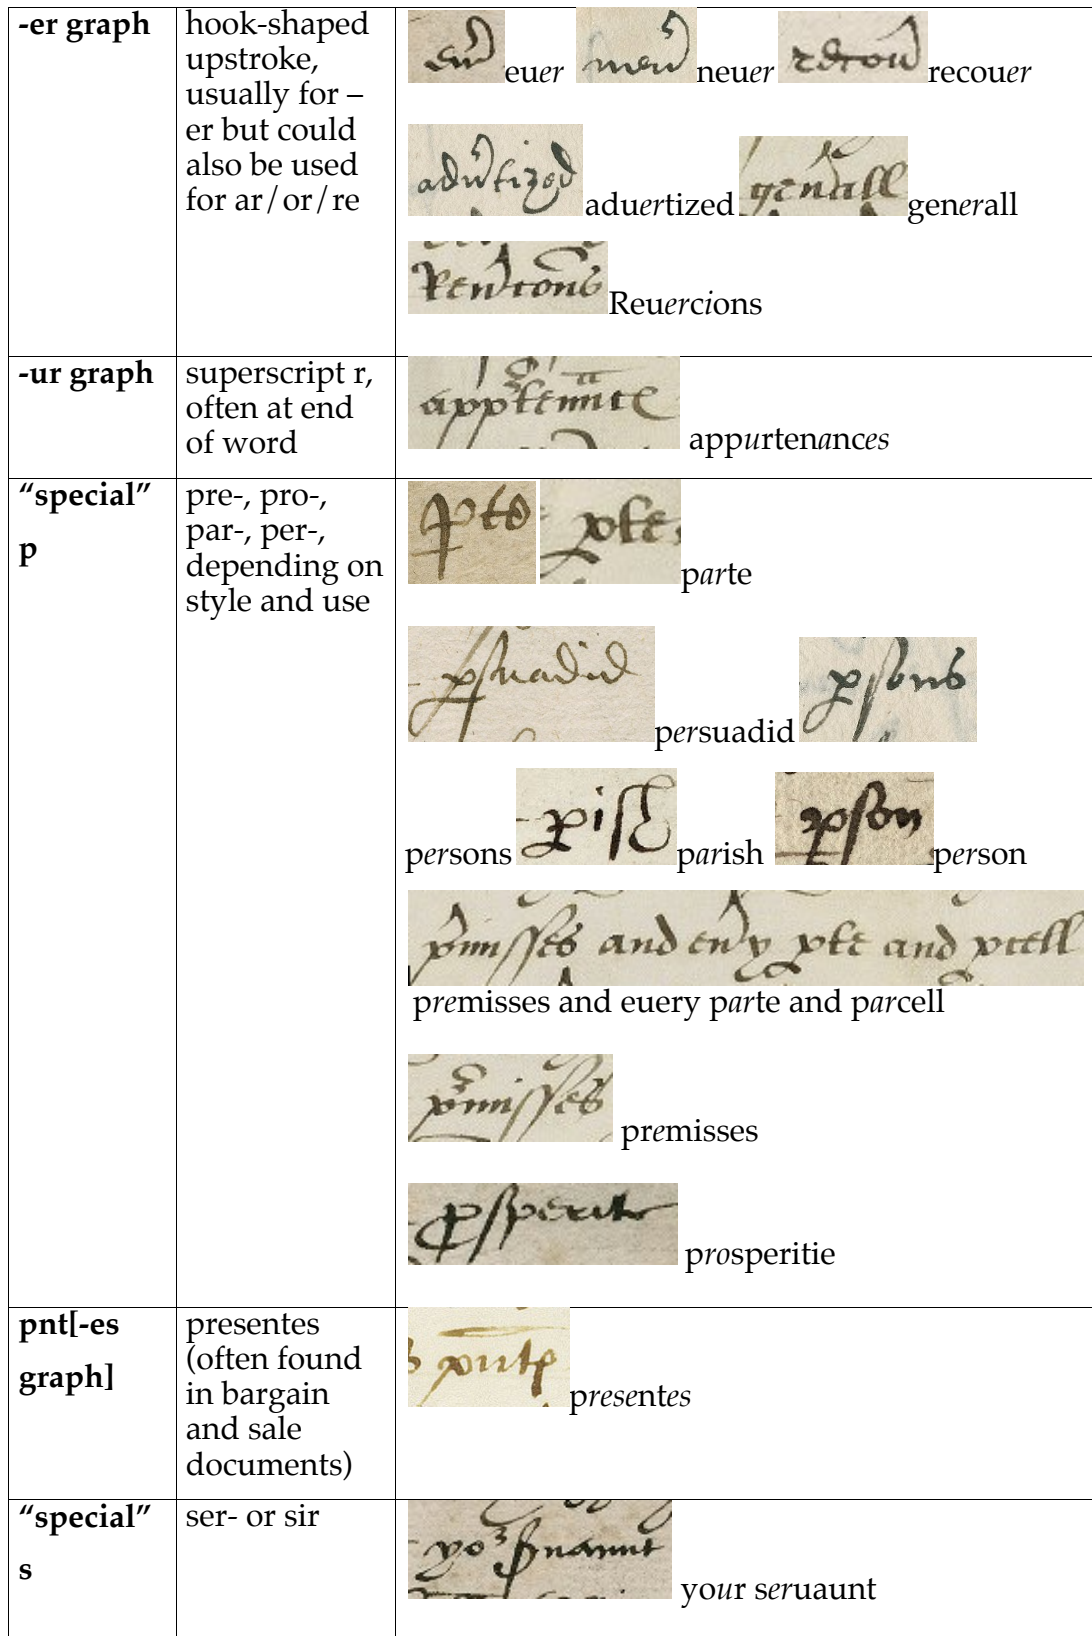 -er graph
hook-shaped
upstroke,
usually for –
er but could
also be used
for ar/or/re
euer neuer recouer
aduertized generall
Reuercions
-ur graph
superscript r,
often at end
of word
appurtenances
“special”
p
pre-, pro-,
par-, per-,
depending on
style and use
parte
persuadid
persons parish person
premisses and euery parte and parcell
premisses
prosperitie
pnt[-es
graph]
presentes
(often found
in bargain
and sale
documents)
presentes
“special”
s
ser- or sir
your seruaunt